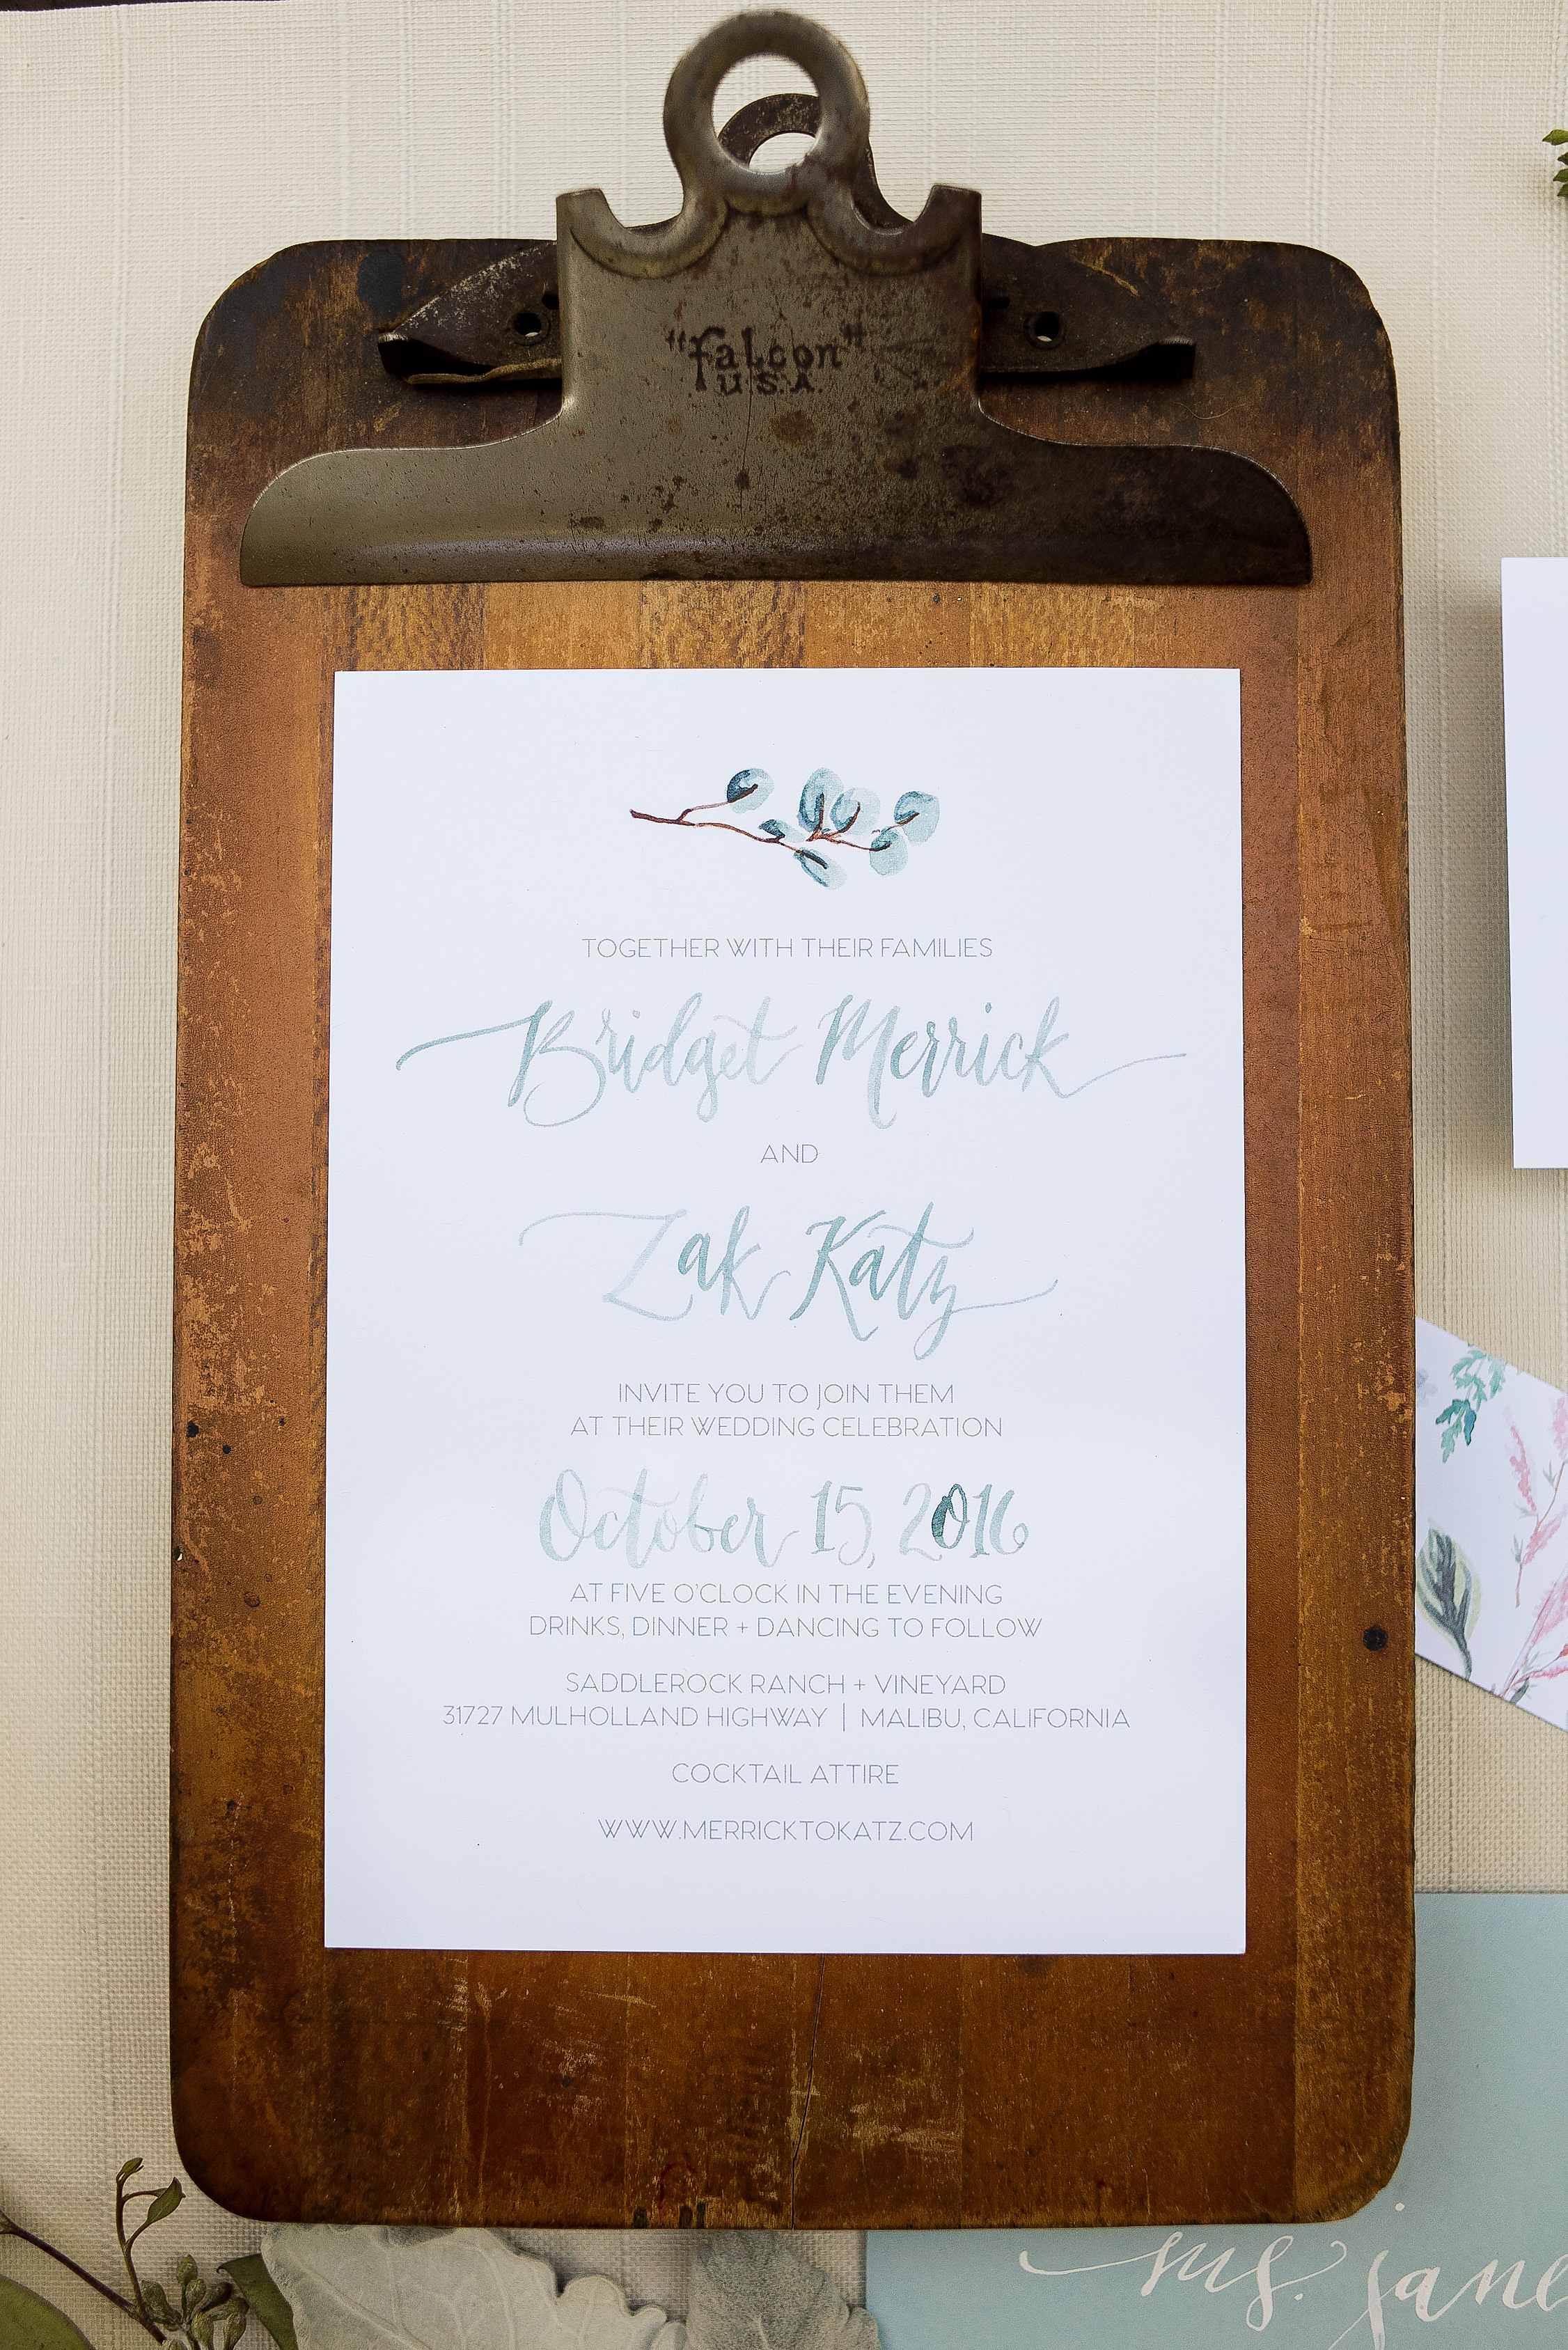 "falcon"
U.S.A.
TOGETHER WITH THEIR FAMILIES
Bridget Merrick
AND
Zak Katz
INVITE YOU TO JOIN THEM
AT THEIR WEDDING CELEBRATION
October 15, 2016
AT FIVE O'CLOCK IN THE EVENING
DRINKS, DINNER + DANCING TO FOLLOW
SADDLEROCK RANCH + VINEYARD
31727 MULHOLLAND HIGHWAY | MALIBU, CALIFORNIA
COCKTAIL ATTIRE
WWW.MERRICKTOKATZ.COM
ms. jane